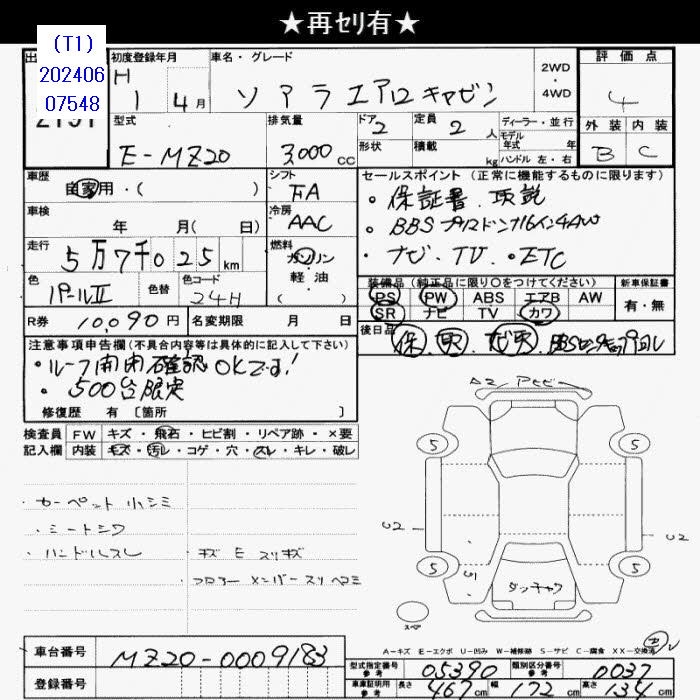 ★再セリ有★
(T1)
202406
07548
初度登録年月
H 1 4月
車名・グレード
ソアラエアロキャビン
2WD・4WD
評価点
4
型式
E-MZ20
排気量
3,000cc
ドア 2
定員 2人
形状
積載 kg
ディーラー・並行
モデル年式 年
ハンドル 左・右
外装 内装
B C
車歴
自家用・( )
シフト
FA
セールスポイント(正常に機能するものに限ります)
・保証書.取説
・BBSアルミ16インチAW
・ナビ.TV.・ETC
車検
年 月( 日)
冷房
AAC
走行
5万7千025km
燃料
ガソリン
軽・油
( )
色
パールⅡ
色替
色コード
24H
装備品(純正品に限り○をつけてください)
PS PW ABS エアB AW
SR ナビ TV カワ
新車保証書
有・無
R券 10,090円
名変期限 月 日
後日品
保.取.ナビ取.
注意事項申告欄(不具合内容等は具体的に記入して下さい)
・ルーフ開閉確認OKです!
・500台限定
修復歴 有 〔箇所 〕
検査員 FW キズ・飛石・ヒビ割・リペア跡・×要
記入欄 内装 キズ・汚レ・コゲ・穴・スレ・キレ・破レ
・カーペット小シミ
・シートシワ
・ハンドルスレ
・キズ E スリキズ
・フロアーメンバースリヘコミ
A2
5 5
U2 U2
5 5
タッチアウ
スペア
A-キズ E-エクボ U-凹み W-補修跡 S-サビ C-腐食 XX-交換済
車台番号
MZ20-0009183
登録番号
型式指定番号 参考 05390
類別区分番号 参考 0037
車庫証明用 参考 長さ 467cm 幅 172cm 高さ 134cm